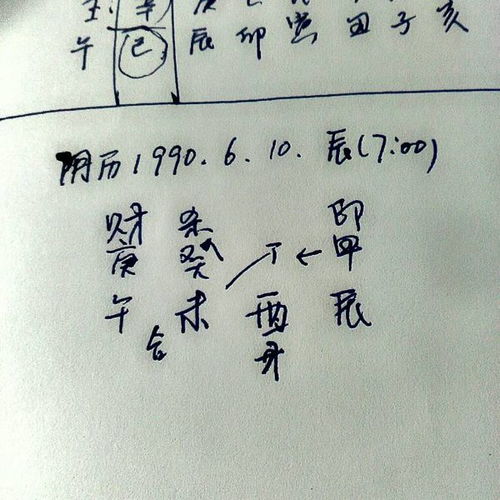 午 巳 辰 卯 寅 丑 子 亥
阴历1990.6.10. 辰(7:00)
财 杀 印
庚 癸 丁 ← 甲
午 未 酉 辰
合